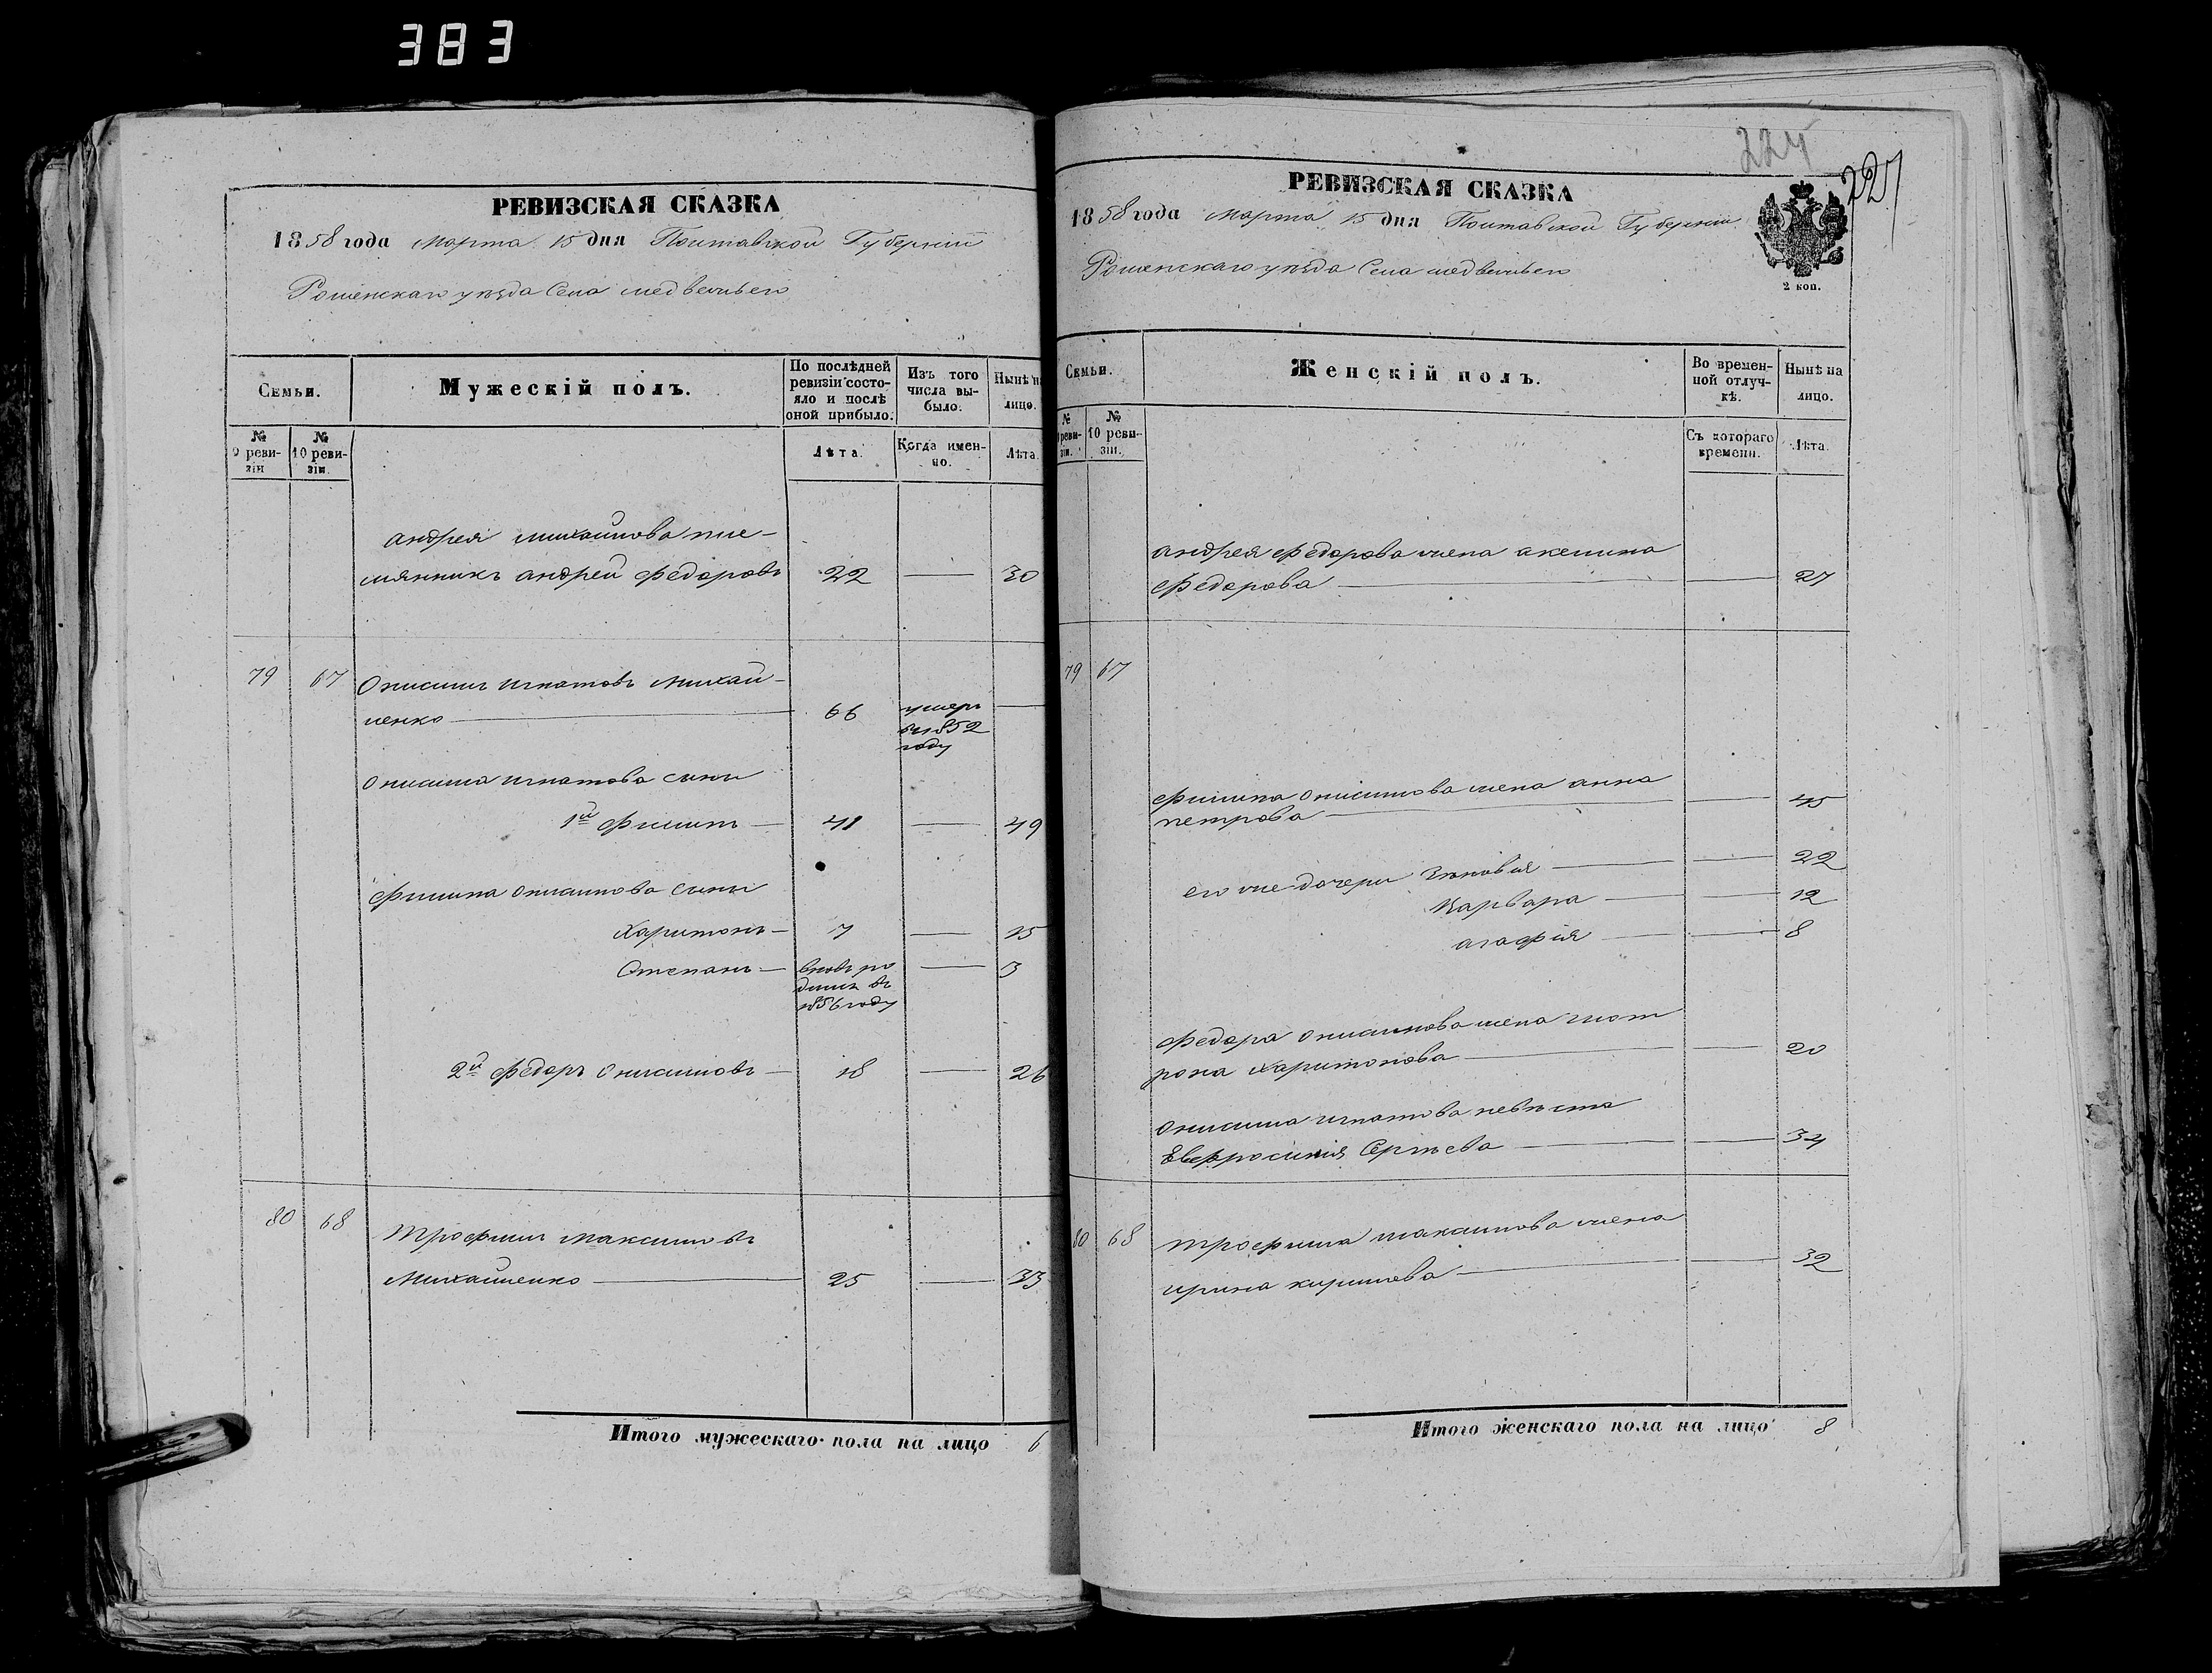 383
РЕВИЗСКАЯ СКАЗКА
1858 года Марта 15 дня Полтавской Губерніи
Роменскаго уѣзда Села медвежьего
Семьи.
Мужескій полъ.
По послѣдней ревизіи состояло и послѣ оной прибыло.
Изъ того числа выбыло.
Нынѣ на лицо.
№ 9 ревизіи
№ 10 ревизіи.
Лѣта.
Когда именно.
Лѣта.
андрея михайлова пле-
мянникъ андрей федоровъ 22 — 30
79 67 Онисимъ игнатовъ Михай-
ленко — 66 умеръ въ 1852 году —
онисима игнатова сыны
1й Филипъ — 41 — 49
филипа онисимова сыны
Харитонъ — 7 — 15
Степанъ — вновь родился въ 1856 году — 3
2й федоръ Онисимовъ — 18 — 26
80 68 Трофимъ максимовъ
Михайленко — 25 — 33
Итого мужескаго пола на лицо 6
224
227
РЕВИЗСКАЯ СКАЗКА
1858 года Марта 15 дня Полтавской Губерніи
Роменскаго уѣзда Села медвежьего
2 коп.
Семьи.
Женскій полъ.
Во временной отлучкѣ.
Нынѣ на лицо.
№ 9 ревизіи.
№ 10 ревизіи.
Съ котораго времени.
Лѣта.
андрея федорова жена акелина
федорова — — 27
79 67
филипа онисимова жена анна
петрова — — 45
его же дочери Зиновія — — 22
Варвара — — 12
агафія — — 8
федора онисимова жена мот
рона харитонова — — 20
онисима игнатова невѣстка
Евфросинія Сергѣева — — 34
80 68 трофима максимова жена
ирина кирилова — — 32
Итого женскаго пола на лицо 8